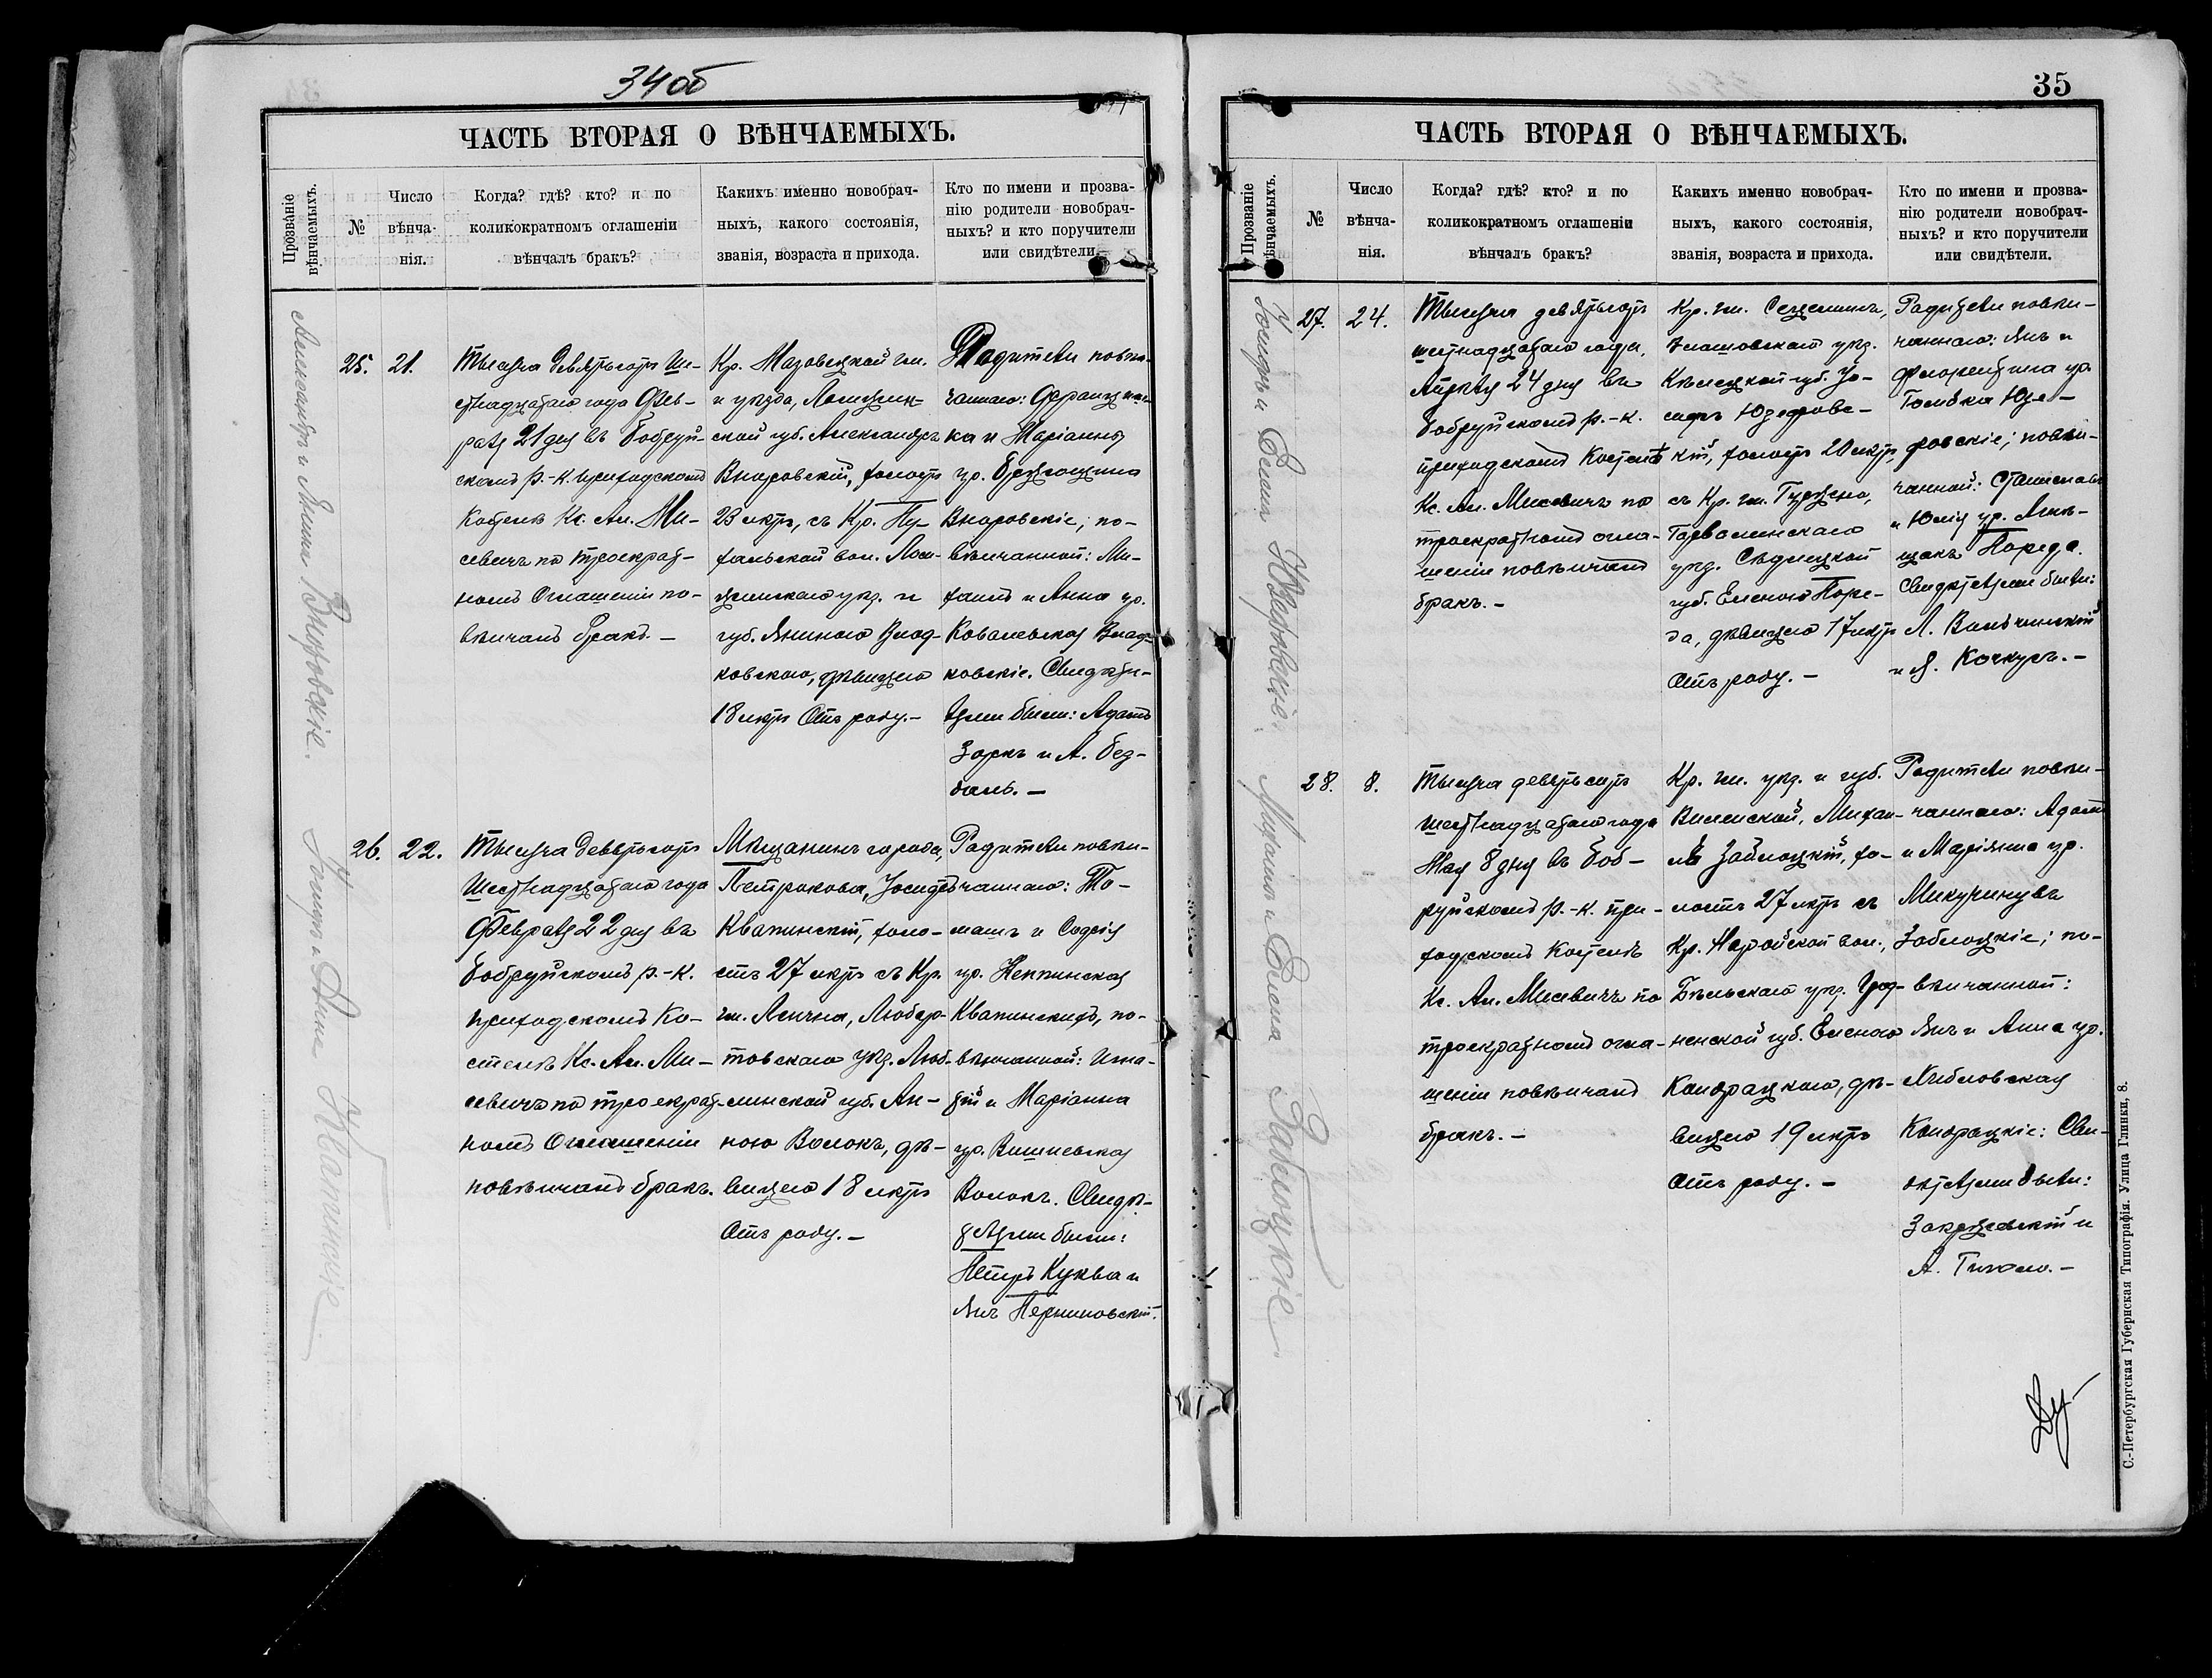 34об
ЧАСТЬ ВТОРАЯ О ВѢНЧАЕМЫХЪ.
Прозваніе
вѣнчаемыхъ.
№
Число
вѣнча-
нія.
Когда? гдѣ? кто? и по
коликократномъ оглашеніи
вѣнчалъ бракъ?
Какихъ именно новобрач-
ныхъ, какого состоянія,
званія, возраста и прихода.
Кто по имени и прозва-
нію родители новобрач-
ныхъ? и кто поручители
или свидѣтели.
Александръ и Янина
25.
21.
Тысяча девятьсотъ Ше-
стнадцатаго года Фев-
раля 21 дня въ Бобруй-
скомъ р.-к. приходскомъ
Костелѣ Кс. Ал. Ми-
севичъ по троекрат-
номъ Оглашеніи по-
вѣнчалъ бракъ. —
Кр. Мазовецкой гм.
и уѣзда, Ломжин-
ской губ. Александръ
холостъ
23 лѣтъ, съ Кр.
вол.
уѣзд. и
губ. Яниною Влад-
ковскою, дѣвицею
18 лѣтъ Отъ роду. —
Родители повѣн-
чаннаго: Францишъ-
ка и Маріанны
ур.
по-
вѣнчанной: Ми-
хаилъ и Анна ур.
Ковалевская Влад-
ковскіе. Свидѣте-
лями были: Адамъ
Зоркъ и А. Без-
—
Іосифъ и Анна Квапинскіе
26.
22.
Тысяча девятьсотъ
Шестнадцатаго года
Февраля 22 дня въ
Бобруйскомъ р.-к.
приходскомъ Ко-
стелѣ Кс. Ал. Ми-
севичъ по троекрат-
номъ Оглашеніи
повѣнчалъ бракъ.
Мѣщанинъ города
Петрокова, Іосифъ
Квапинскій, холо-
стъ 27 лѣтъ съ Кр.
гм. Любар-
товскаго уѣзд. Люб-
линской губ. Ан-
ною Волокъ, дѣ-
вицею 18 лѣтъ
Отъ роду. —
Родители повѣн-
чаннаго: То-
машъ и Софія
ур. Кемпинская
Квапинскихъ, по-
вѣнчанной: Игна-
тій и Маріанна
ур. Вишневская
Волокъ. Свидѣ-
телями были:
Петръ Куква и
Янъ
35
ЧАСТЬ ВТОРАЯ О ВѢНЧАЕМЫХЪ.
Прозваніе
вѣнчаемыхъ.
№
Число
вѣнча-
нія.
Когда? гдѣ? кто? и по
коликократномъ оглашеніи
вѣнчалъ бракъ?
Какихъ именно новобрач-
ныхъ, какого состоянія,
званія, возраста и прихода.
Кто по имени и прозва-
нію родители новобрач-
ныхъ? и кто поручители
или свидѣтели.
Іосифъ и Елена Юзефовскіе.
27.
24.
Тысяча девятьсотъ
шестнадцатаго года,
Апрѣля 24 дня въ
Бобруйскомъ р.-к.
приходскомъ Костелѣ
Кс. Ал. Мисевичъ по
троекратномъ огла-
шеніи повѣнчалъ
бракъ. —
Кр. гм. Сецеминъ,
уѣзд.
Кѣлецкой губ. Іо-
сифъ Юзефовс-
кій, холостъ 20 лѣтъ,
съ Кр. гм.
Гарволинскаго
уѣзд. Сѣдлецкой
губ. Еленою Поре-
да, дѣвицею 17 лѣтъ
Отъ роду. —
Родители повѣн-
чаннаго: Янъ и
Флорентина ур.
Юзе-
фовскіе; повѣн-
чанной: Станиславъ
и Юлія ур.
Пореда.
Свидѣтелями были:
Л. Вильчинскій
и Я. Кочкусъ. —
Михаилъ и Елена Заблоцкіе
28.
8.
Тысяча девятьсотъ
Шестнадцатаго года
Мая 8 дня въ Боб-
руйскомъ р.-к. при-
ходскомъ Костелѣ
Кс. Ал. Мисевичъ по
троекратномъ огла-
шеніи повѣнчалъ
бракъ. —
Кр. гм. уѣзд. и губ.
Виленской, Миха-
лъ Заблоцкій, хо-
лостъ 27 лѣтъ съ
Кр. вол.,
Бѣльскаго уѣзд. Грод-
ненской губ. Еленою
Кондрацкою, дѣ-
вицею 19 лѣтъ
Отъ роду. —
Родители повѣн-
чаннаго: Адамъ
и Маріанна ур.
Заблоцкіе; по-
вѣнчанной:
Янъ и Анна ур.
Кондрацкіе: Сви-
дѣтелями были:
Закржевскій и
А. —
С.-Петербургская Губернская Типографія. Улица Глинки, 8.